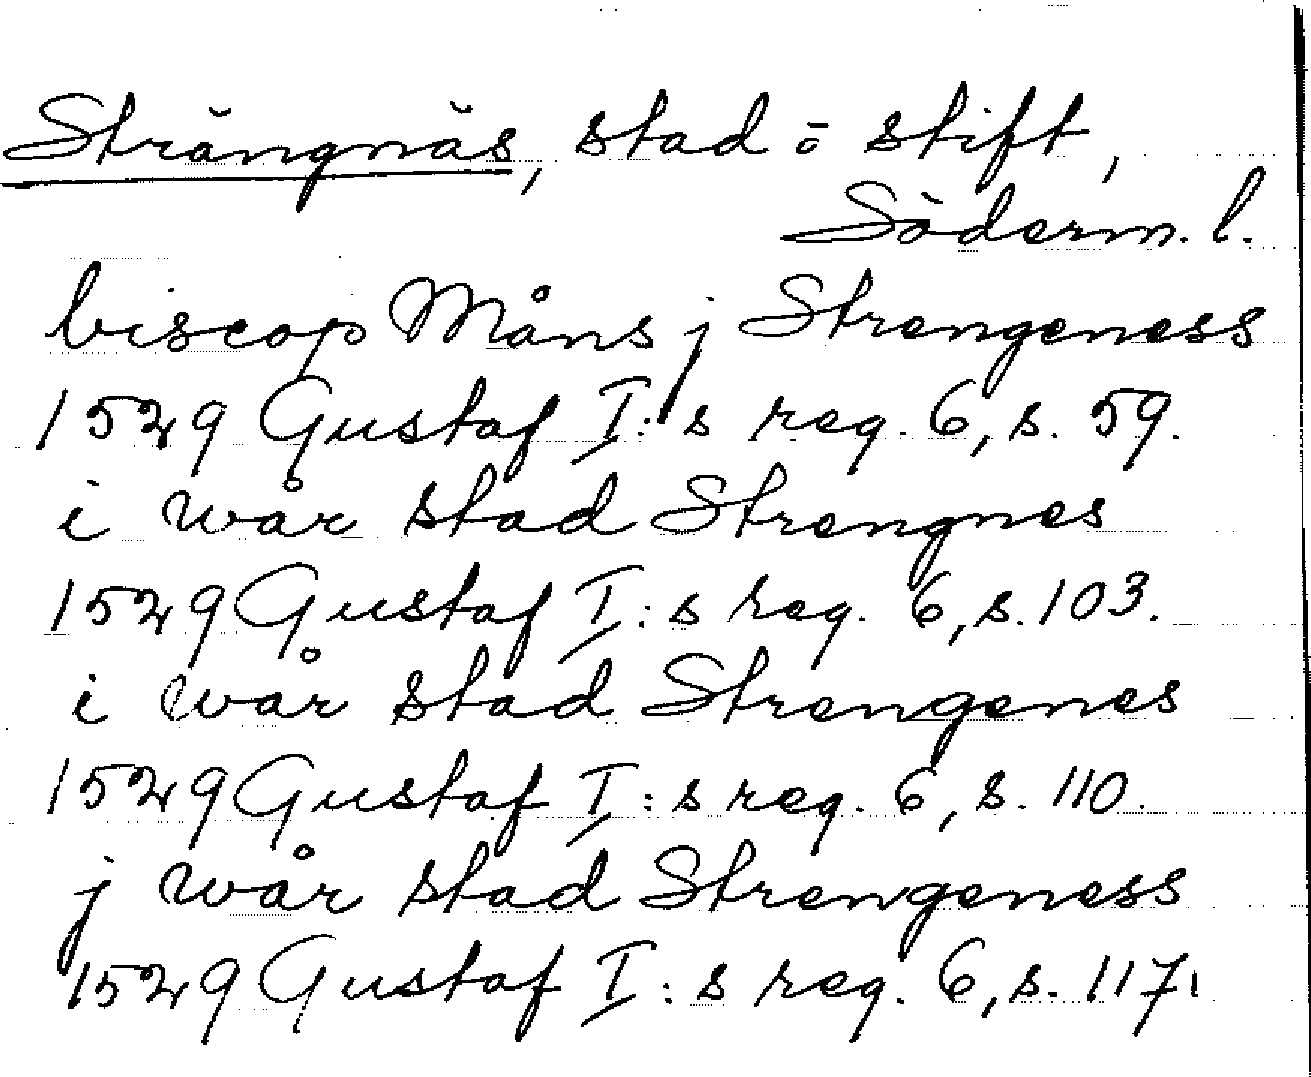 Strängnäs, stad o stift,
Söderm. l.
biscop Måns j Strengeness
1529 Gustaf I:s reg. 6, s. 59.
i wår stad Strengnes
1529 Gustaf I:s reg. 6, s. 103.
i wår stad Strengenes
1529 Gustaf I:s reg. 6, s. 110.
j wår stad Strengeness
1529 Gustaf I:s reg. 6, s. 117.